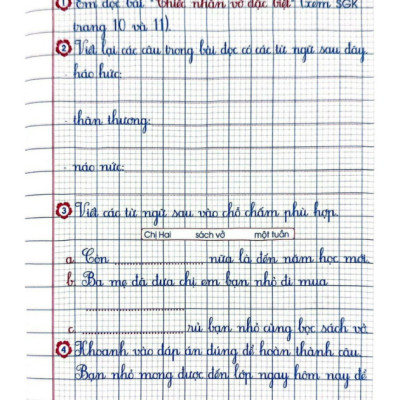 1 Em đọc bài "Chiếc nhãn vở đặc biệt" (xem SGK
trang 10 và 11).
2 Viết lại các câu trong bài đọc có các từ ngữ sau đây.
- háo hức:
- thân thương:
- náo nức:
3 Viết các từ ngữ sau vào chỗ chấm phù hợp.
Chị Hai sách vở một tuần
a Còn .................... nữa là đến năm học mới.
b Ba mẹ đã đưa chị em bạn nhỏ đi mua
....................
c .................... rủ bạn nhỏ cùng bọc sách vở.
4 Khoanh vào đáp án đúng để hoàn thành câu.
Bạn nhỏ mong được đến lớp ngay hôm nay để